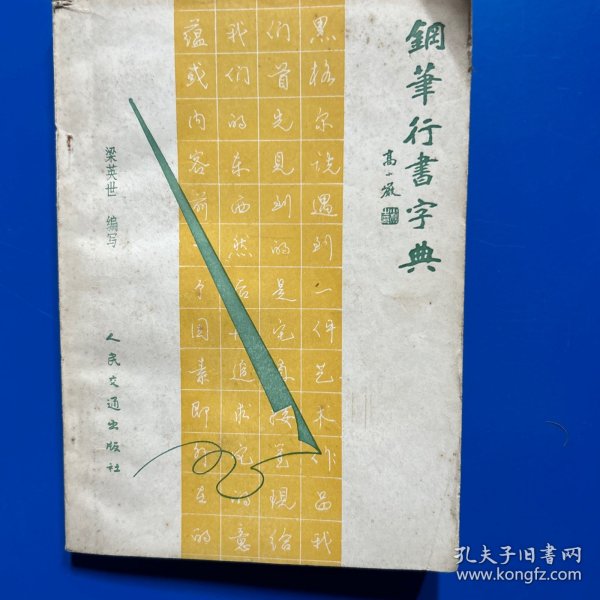 鋼筆行書字典
高一
黑格尔说遇到一件艺术作品我
们首先见到的是它直接呈现给
我们的东西然后再追求它的意
蕴或内容前一个因素即外在的
梁英世 编写
人民交通出版社
孔夫子旧书网
www.kongfz.com